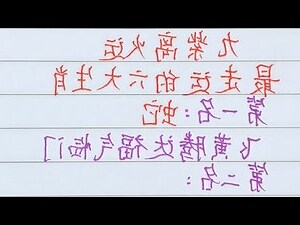 九紫离火运
最走运的六大生肖
第一名：蛇
飞黄腾达福气临门
第二名：